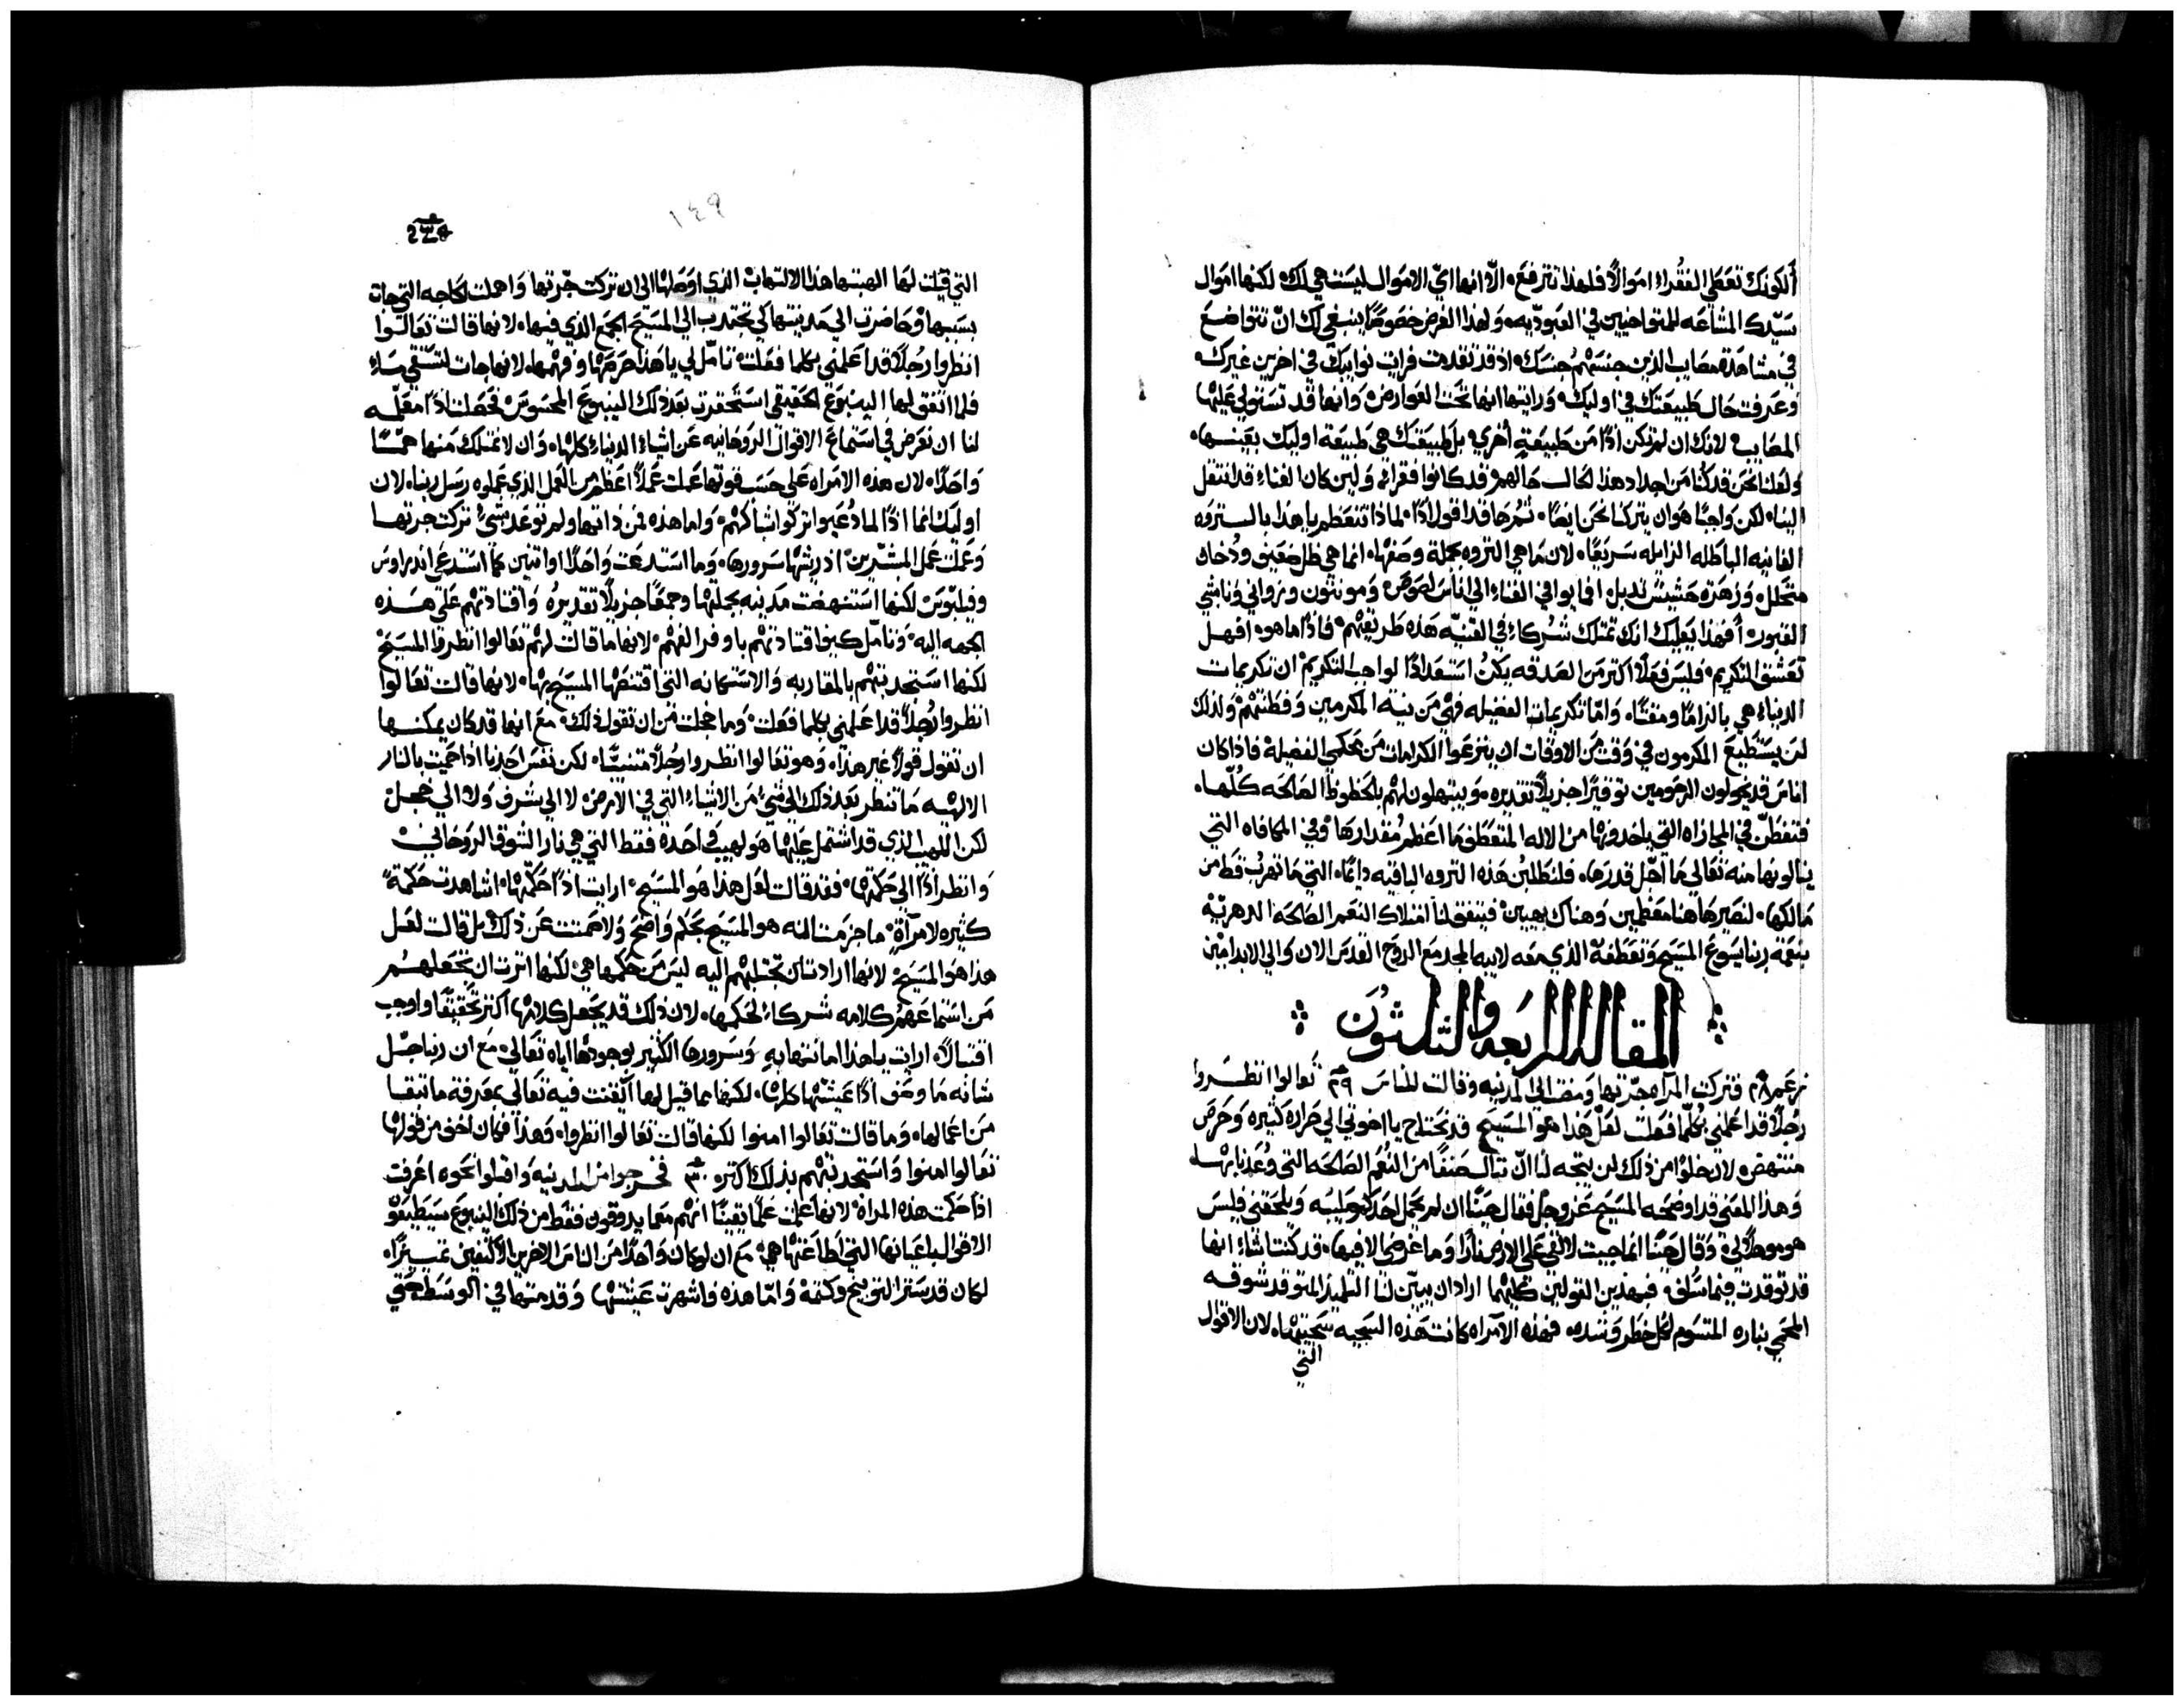 ألكونك تعطي الفقراء اموالاً فلهذا تترفع. الّا انها ايّ الاموال ليست هي لك لكنها اموال
سيّدك المشاعه للمتواخيين في العبوديه. ولهذا الغرض خصوصًا ينبغي لك انّ تتواضع
في مشاهدة مصايب الذين جنسهم جنسك. اذ قد تقدمت فرايت نوايبك في اخرين غيرك
وعرفت حال طبيعتك في اوليك. ورايتها انها تحت العوارض. وانها قد تستولي عليها
المصايب. لانك ان لم تكن اذًا من طبيعةٍ أخري. بل طبيعتك هي طبيعة اوليك بعينها.
ولعلنا نحن قد كنا من اجداد هذا الحال حالهم قد كانوا فقراء. وليين كان الغناء قد انتقل
الينا. لكن واجبًا هو ان يتركنا نحن ايضًا. ثم ها قد اقول اذًا. لماذا تتعظم يا هذا بالستروه
الفانيه الباطله الزايله سريعًا. لان ما هي الثروه بجملة وصفها. انما هي ظل ضعيف ودُخان
متحلل. وزهرة حشيش تدبل. افما يوافي الغناء الي اناس لصوص ومونثون وزواني ونابشي
القبور. أفهذا يعليك انك تمتلك شركاء في القنيّه هذه طريقتهم. فاذًا ما هو. افهل
تعشق التكريم. فليس فعلاً اكتر من الصدقه يكنُ استعدادًا لواجب التكريم. ان تكريمات
الدنياء هي بالزامًا ومقتًا. وامّا تكريمات الفضيله فهي من نية المكرمين وفطنتهم. ولذلك
لن يستطيع المكرمون في وقت من الاوقات ان ينزعوا الكرامات من محكمي الفضيلة. فاذا كان
اناس قد يخولون المرحومين توقيرًا جزيلاً تقديره. ويبتهلون لهم بالحظوظ الصالحه كلّها.
فتفطّن في المجازاه التي ياخدونها من الاله المتعطف ما اعظم مقدارها. وفي المكافاه التي
ينالونها منه تعالي ما أجّل قدرها. فلنطلبُنّ هذه الثروه الباقيه دايمًا. التي ما تهرب قط من
مالكها. لنصير هاهنا معظمين وهناك بهيين. فيتفق لنا امتلاك النعم الصالحه الدهريّه
بنعمة ربنا يسوع المسيح وتعطفه الذي معه لابيه المجد مع الروح القدس الان والي الابد امين
المقاله الرابعه والتلثون
نص عم ٢٨ فتركت المرآه جرّتها ومضت الي المدينه وقالت للناس ٢٩ تعالوا انظـروا
رجلاً قد اعلمني بكلّما فعلت. لعلّ هذا هو المسيح. قد نحتاج يا اخوتي الي حراره كثيره وحرص
منتهض. لان خلوًا من ذلك لن يتجه لنا انّ ننال صنفًا من النعم الصالحه التي وُعدنا بها.
وهذا المعني قد اوضحه المسيح عز وجل فقال حينًا ان لم يحمل احد كم صليبه ويلحقني فليس
هو موهلاً لي. وقال حينًا انما جيت لالقي علي الارض نارًا وما غرضي الا فيها. قد كنت اشاء انها
قد توقدت فيما سلف. فبهذين القولين كليهما اراد ان يبيّن لنا التلميذ المتوقد شوقـه
المحمي بناره المتسوم لكل خطر وشده. فهذه الامراه كانت هذه السجيه سجيتها. لان الاقوال
التي
١٤٩
التي قيلت لها الهبتها هذا الالتهاب الذي اوصلها الي ان تركت جرّتها واهملت الحاجه التي جات
بسببها. وحاضرت الي مدينتها كي تجتدب الي المسيح الجمع الذي فيها. لانها قالت تعالوا
انظروا رجلاً قد اعلمني بكلما فعلت. تامّل لي يا هذا حرصها وفهمها. لانها جات لتستقي ماءً
فلما اتفق لها الينبوع الحقيقي استحقرت بعد ذلك الينبوع المحسوس. فحصلت اذًا معلّمه
لنا ان نعرض في استماع الاقوال الروحانيه عن اشياء الدنياء كلها. وان لا نمتلك منها همًّا
واحدًا. لان هذه الامراه علي حسب قوتها عملت عملاً اعظم من العمل الذي عملوه رسل ربنا. لان
اوليك انما اذًا لما دُعيوا تركوا شباكهم. واما هذه فمن ذاتها ولم توعد بشيءٍ تركت جرتها
وعملت عمل المبشّرين. اذ ريشها سرورها. وما استدعت واحدًا او اتنين كما استدعي اندراوس
وفيلبوس لكنها استنهضت مدينه بجملتها وجمعًا جزيلاً تقديره. واقتادتهم علي هذه
الجهه اليه. وتامّل كيف اقتادتهم باوفر الفهم. لانها ما قالت لهم تعالوا انظروا المسيح
لكنها استجدبتهم بالمقاربه والاستمانه التي اقتنصها المسيح بها. لانها قالت تعالوا
انظروا رجلاً قد اعلمني بكلما فعلت. وما خجلت من ان تقول ذلك. مع انها قد كان يمكنها
ان تقول قولاً غير هذا. وهو تعالوا انظروا رجلاً متنبيًّا. لكن نفس احدنا اذا حميت بالنار
الالهيه ما تنظر بعد ذلك الي شيءٍ من الاشياء التي في الارض. لا الي شرف ولا الي خجل
لكن اللهيب الذي قد اشتمل عليها هو لهيب واحدة فقط التي هي نار الشوق الروحاني
وانظر اذًا الي حكمتها. فقد قالت لعل هذا هو المسيح. ارايت اذًا حكمتها. اشاهدت حكمةً
كثيره لامرآةٍ. ما جزمت انه هو المسيح بحكم واضح. ولا صمتت عن ذلك بل قالت لعل
هذا هو المسيح. لانها ارادت ان تجتلبهم اليه ليس من حكمها هي. لكنها اثرت ان تجعلهم
من استماعهم كلامه شركاءً لحكمها. لان ذلك قد يجعل كلامها اكثر تحقيقًا واوجب
اقتبالاً. ارايت يا هذا امانتها به وسرورها الكثير بوجودها اياه تعالي. مع ان ربنا جّل
شانه ما وصف اذًا عيشتها كلها. لكنها مما قيل لها ايقنت فيه تعالي بمعرفة ما تبقا
من اعمالها. وما قالت تعالوا امنوا لكنها قالت تعالوا انظروا. وهذا فكان اخف من قولها
تعالوا امنوا واستجدبتهم بذلك اكتر. ٣٠ فخرجوا من المدينه واقبلوا نحوه. اعرفت
اذًا حكمت هذه المراة. لانها علمت علمًا يقينًا انهم معما يدوقون فقط من ذلك الينبوع سينطبقوا
الاقوال باعيانها التي اطاعتها هي. مع ان لو كان واحدًا من الناس الاخرين الاكثفين تمييزًا.
لكان قد ستر التوبيخ وكتمه. وامّا هذه فاشهرت عيشتها وقدمتها في الوسط حتي